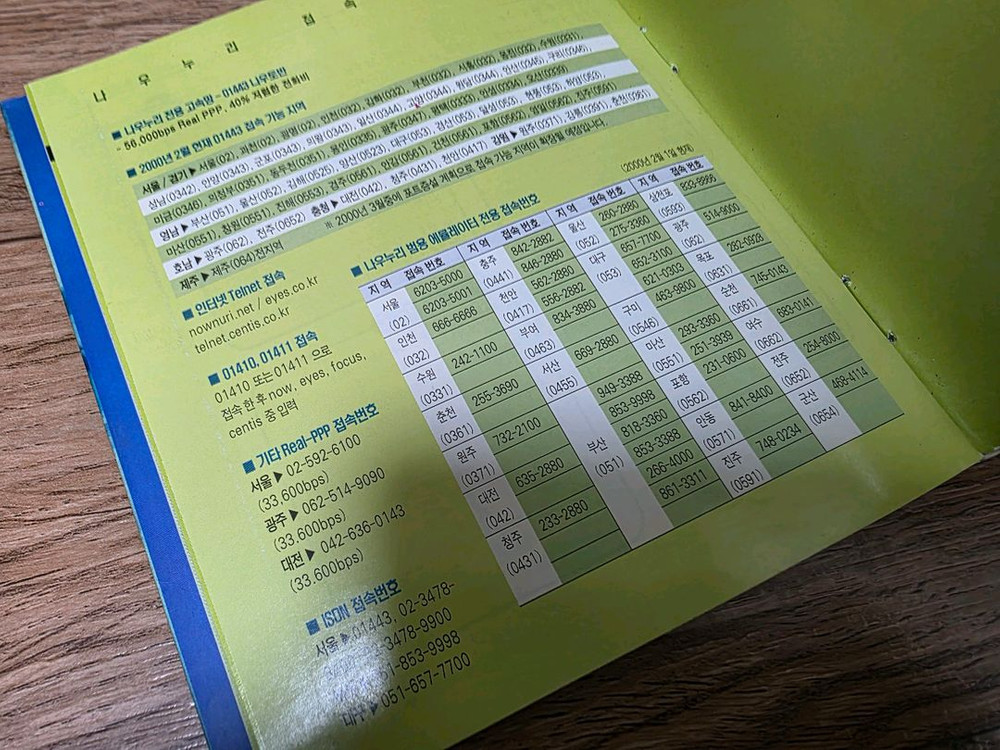 나우누리 접속
■ 나우누리 전용 고속망 - 01443 나우토반
- 56,000bps Real PPP, 40% 저렴한 전화비
■ 2000년 2월 현재 01443 접속 가능 지역
서울 / 경기 ▶ 서울(02), 과천(02), 광명(02), 인천(032), 김해(032), 부천(032), 시흥(032), 옹진(032), 수원(0331),
성남(0342), 안양(0343), 군포(0343), 의왕(0343), 일산(0344), 고양(0344), 원당(0344), 안산(0345), 구리(0346),
미금(0346), 의정부(0351), 동두천(0351), 용인(0335), 광주(0347), 평택(0333), 안성(0334), 오산(0339)
영남 ▶ 부산(051), 울산(052), 김해(0525), 양산(0523), 대구(053), 경산(053), 달성(053), 현풍(053), 하양(053),
마산(0551), 창원(0551), 진해(0553), 경주(0561), 안강(0561), 감천(0561), 포항(0562), 영일(0562), 진주(0591)
호남 ▶ 광주(062), 전주(0652) 충청 ▶ 대전(042), 청주(0431), 천안(0417) 강원 ▶ 원주(0371), 강릉(0391), 춘천(0361)
제주 ▶ 제주(064)전지역
※ 2000년 3월중에 포트증설 계획으로 접속 가능 지역이 확장될 예정입니다.
■ 인터넷 Telnet 접속
nownuri.net / eyes.co.kr
telnet.centis.co.kr
■ 01410, 01411 접속
01410 또는 01411 으로
접속 한 후 now, eyes, focus,
centis 중 입력
■ 기타 Real-PPP 접속번호
서울 ▶ 02-592-6100
(33.600bps)
광주 ▶ 062-514-9090
(33.600bps)
대전 ▶ 042-636-0143
(33.600bps)
■ ISDN 접속번호
서울 ▶ 01443, 02-3478-
3478-9900
853-9998
대구 ▶ 051-657-7700
■ 나우누리 범용 에뮬레이터 전용 접속번호
(2000년 2월 1일 현재)
지역 접속 번호 지역 접속 번호 지역 접속 번호 지역 접속 번호
서울 (02) 6203-5000
6203-5001
인천 (032) 866-6866
수원 (0331) 242-1100
춘천 (0361) 255-3690
원주 (0371) 732-2100
대전 (042) 635-2880
청주 (0431) 233-2880
충주 (0441) 842-2882
846-2880
천안 (0417) 562-2880
556-2882
부여 (0463) 834-3880
서산 (0455) 669-2880
부산 (051) 949-3388
853-9998
818-3360
853-3388
266-4000
861-3311
울산 (052) 260-2880
275-3360
대구 (053) 857-7700
652-3100
621-0303
구미 (0546) 463-9800
마산 (0551) 293-3360
251-3939
포항 (0562) 231-0600
안동 (0571) 841-8400
진주 (0591) 748-0234
삼천포 (0593) 833-8866
광주 (062) 514-9000
목포 (0631) 282-0928
순천 (0661) 745-0143
여수 (0662) 683-0141
전주 (0652) 254-9000
군산 (0654) 468-4114